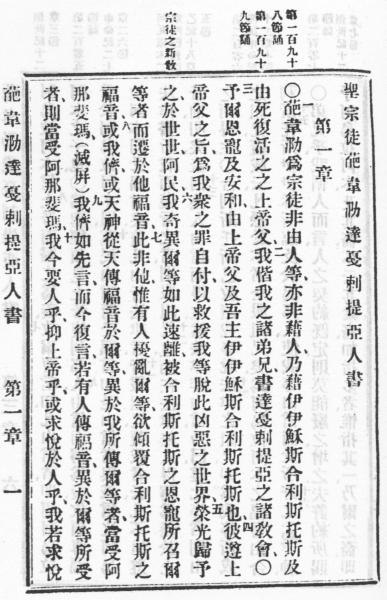 第一百九十
八節誦
第一百九十
九節誦
宗徒之斯敎
聖宗徒葩韋泐達戞剌提亞人書
第一章
〇葩韋泐爲宗徒非由人等、亦非藉人、乃藉伊伊穌斯合利斯托斯及
由死復活之之上帝父、二我偕我之諸弟兄書達戞剌提亞之諸敎會、〇
三予爾恩寵及安和由上帝父及吾主伊伊穌斯合利斯托斯也、四彼遵上
帝父之旨、爲我衆之罪自付以救援我等脫此凶惡之世界、五榮光歸予
之於世世阿民、六我奇異爾等如此速離被合利斯托斯之恩寵所召爾
等者而遷於他福音、七此非他、惟有人擾亂爾等、欲傾覆合利斯托斯之
福音、八或我儕或天神從天傳福音於爾等異於我所傳爾等者、當受阿
那斐瑪、(滅屏)九我儕如先言、而今復言、若有人傳福音異於爾等所受
者、則當受阿那斐瑪、十我今要人乎、抑上帝乎、或求悅於人乎、我若求悅
葩韋泐達戞剌提亞人書 第一章 一